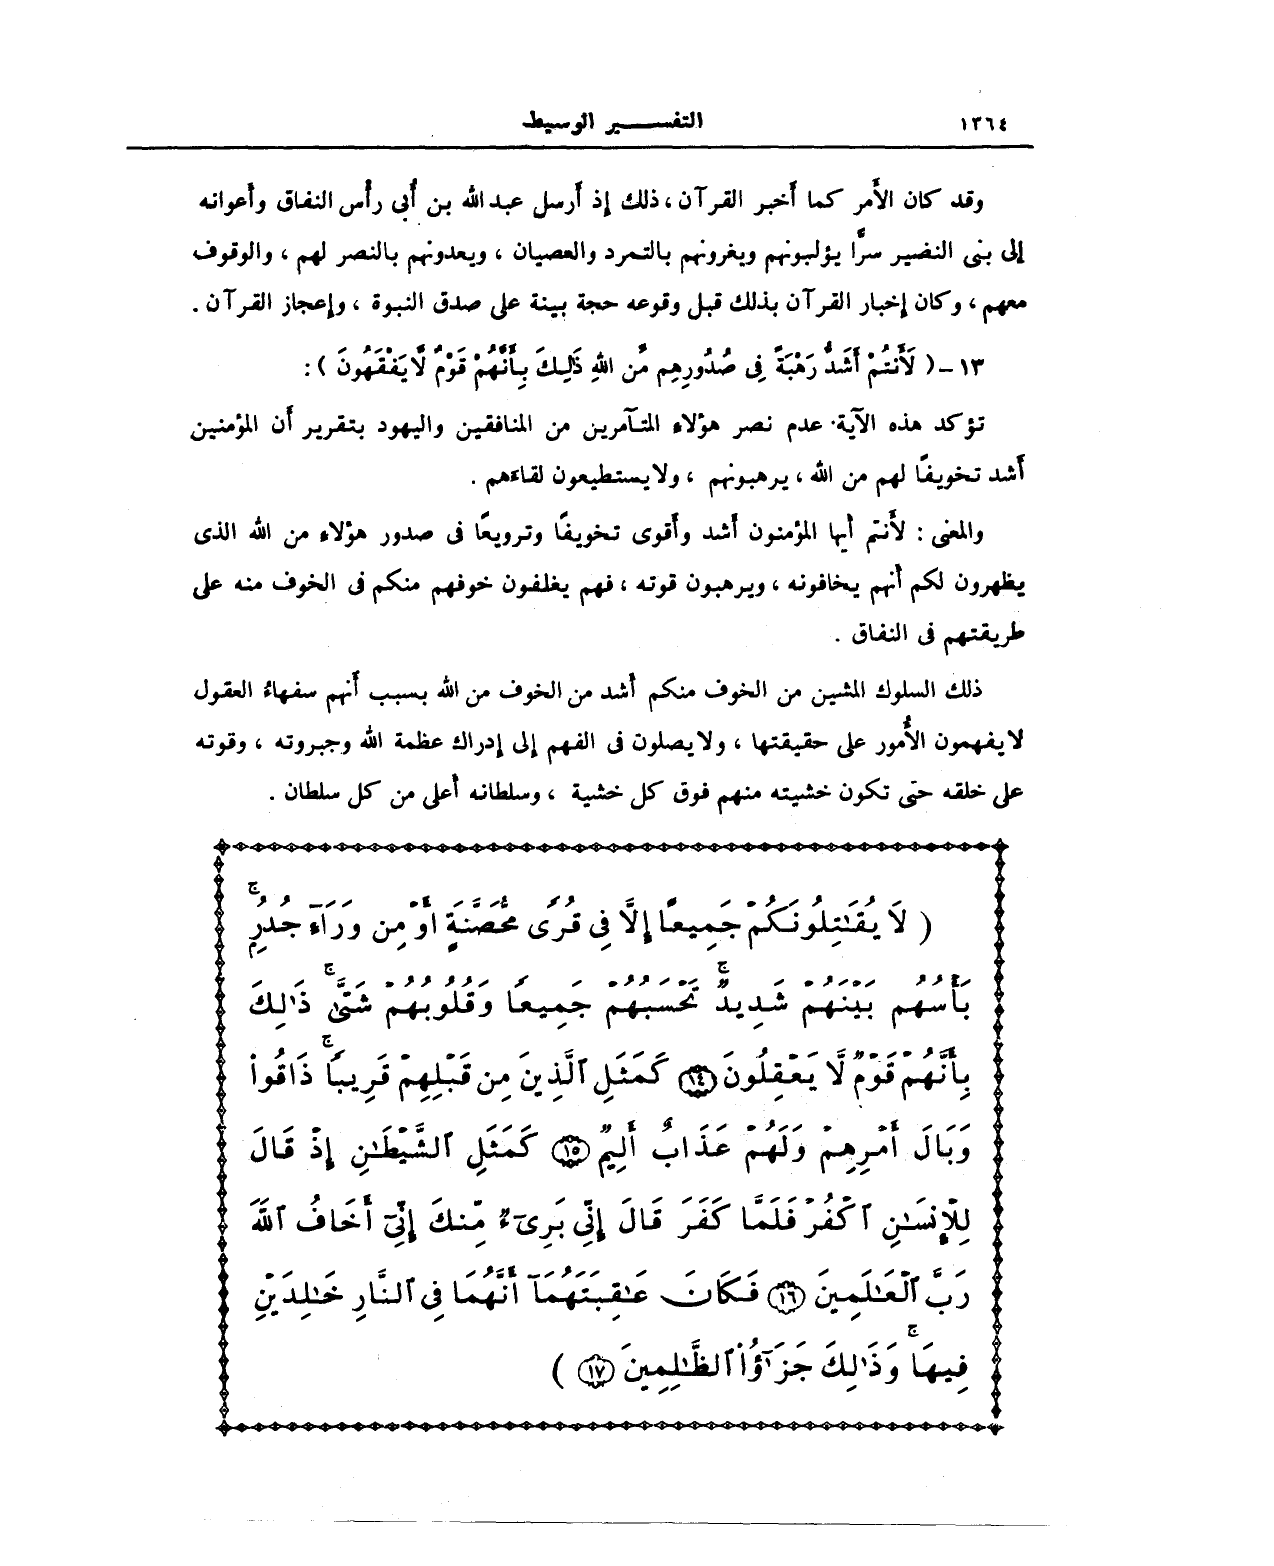 ١٣٦٤
التفسير الوسيط
وقد كان الأمر كما أخبر القرآن ، ذلك إذ أرسل عبد الله بن أبى رأس النفاق وأعوانه
إلى بنى النضير سرًّا يؤلبونهم ويغرونهم بالتمرد والعصيان ، ويعدونهم بالنصر لهم ، والوقوف
معهم ، وكان إخبار القرآن بذلك قبل وقوعه حجة بينة على صدق النبوة ، وإعجاز القرآن .
١٣ - ( لَأَنتُمْ أَشَدُّ رَهْبَةً فِى صُدُورِهِم مِّنَ اللهِ ذَٰلِكَ بِأَنَّهُمْ قَوْمٌ لَّا يَفْقَهُونَ ) :
تؤكد هذه الآية عدم نصر هؤلاء المتآمرين من المنافقين واليهود بتقرير أن المؤمنين
أشد تخويفًا لهم من الله ، يرهبونهم ، ولا يستطيعون لقاءهم .
والمعنى : لأَنتم أيها المؤمنون أشد وأقوى تخويفًا وترويعًا فى صدور هؤلاء من الله الذى
يظهرون لكم أنهم يخافونه ، ويرهبون قوته ، فهم يغلفون خوفهم منكم فى الخوف منه على
طريقتهم فى النفاق .
ذلك السلوك المشين من الخوف منكم أشد من الخوف من الله بسبب أنهم سفهاءُ العقول
لا يفهمون الأُمور على حقيقتها ، ولا يصلون فى الفهم إلى إدراك عظمة الله وجبروته ، وقوته
على خلقه حتى تكون خشيته منهم فوق كل خشية ، وسلطانه أعلى من كل سلطان .
( لَا يُقَـٰتِلُونَكُمْ جَمِيعًا إِلَّا فِى قُرًى مُّحَصَّنَةٍ أَوْ مِن وَرَآءِ جُدُرٍۭ ۚ
بَأْسُهُم بَيْنَهُمْ شَدِيدٌ ۚ تَحْسَبُهُمْ جَمِيعًا وَقُلُوبُهُمْ شَتَّىٰ ۚ ذَٰلِكَ
بِأَنَّهُمْ قَوْمٌ لَّا يَعْقِلُونَ ١٤ كَمَثَلِ ٱلَّذِينَ مِن قَبْلِهِمْ قَرِيبًا ۚ ذَاقُوا۟
وَبَالَ أَمْرِهِمْ وَلَهُمْ عَذَابٌ أَلِيمٌ ١٥ كَمَثَلِ ٱلشَّيْطَـٰنِ إِذْ قَالَ
لِلْإِنسَـٰنِ ٱكْفُرْ فَلَمَّا كَفَرَ قَالَ إِنِّى بَرِىٓءٌ مِّنكَ إِنِّىٓ أَخَافُ ٱللَّهَ
رَبَّ ٱلْعَـٰلَمِينَ ١٦ فَكَانَ عَـٰقِبَتَهُمَآ أَنَّهُمَا فِى ٱلنَّارِ خَـٰلِدَيْنِ
فِيهَا ۚ وَذَٰلِكَ جَزَـٰٓؤُا۟ ٱلظَّـٰلِمِينَ ١٧ )